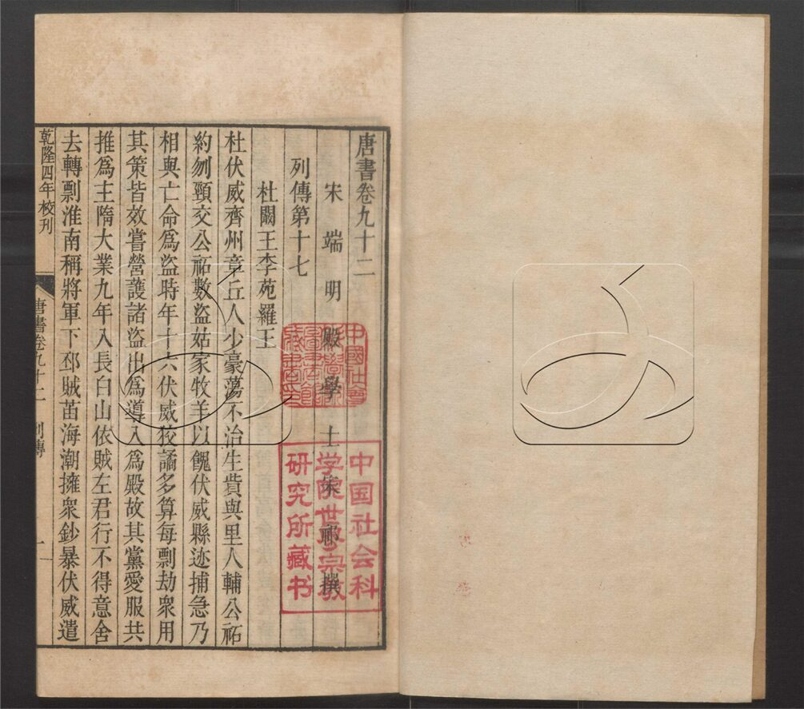 唐書卷九十二
宋端明殿學士宋祁撰
列傳第十七
杜闞王李苑羅王
杜伏威齊州章丘人少豪蕩不治生貲與里人輔公祏
約刎頸交公祏數盜姑家牧羊以餽伏威縣迹捕急乃
相與亡命為盜時年十六伏威狡譎多算每剽劫衆用
其策皆效嘗營護諸盜出為導入為殿故其黨愛服共
推為主隋大業九年入長白山依賊左君行不得意舍
去轉剽淮南稱將軍下邳賊苗海潮擁衆鈔暴伏威遣
乾隆四年校刊
唐書卷九十二 列傳 一
中國社會
中国社会科
学院世界宗教
研究所藏书